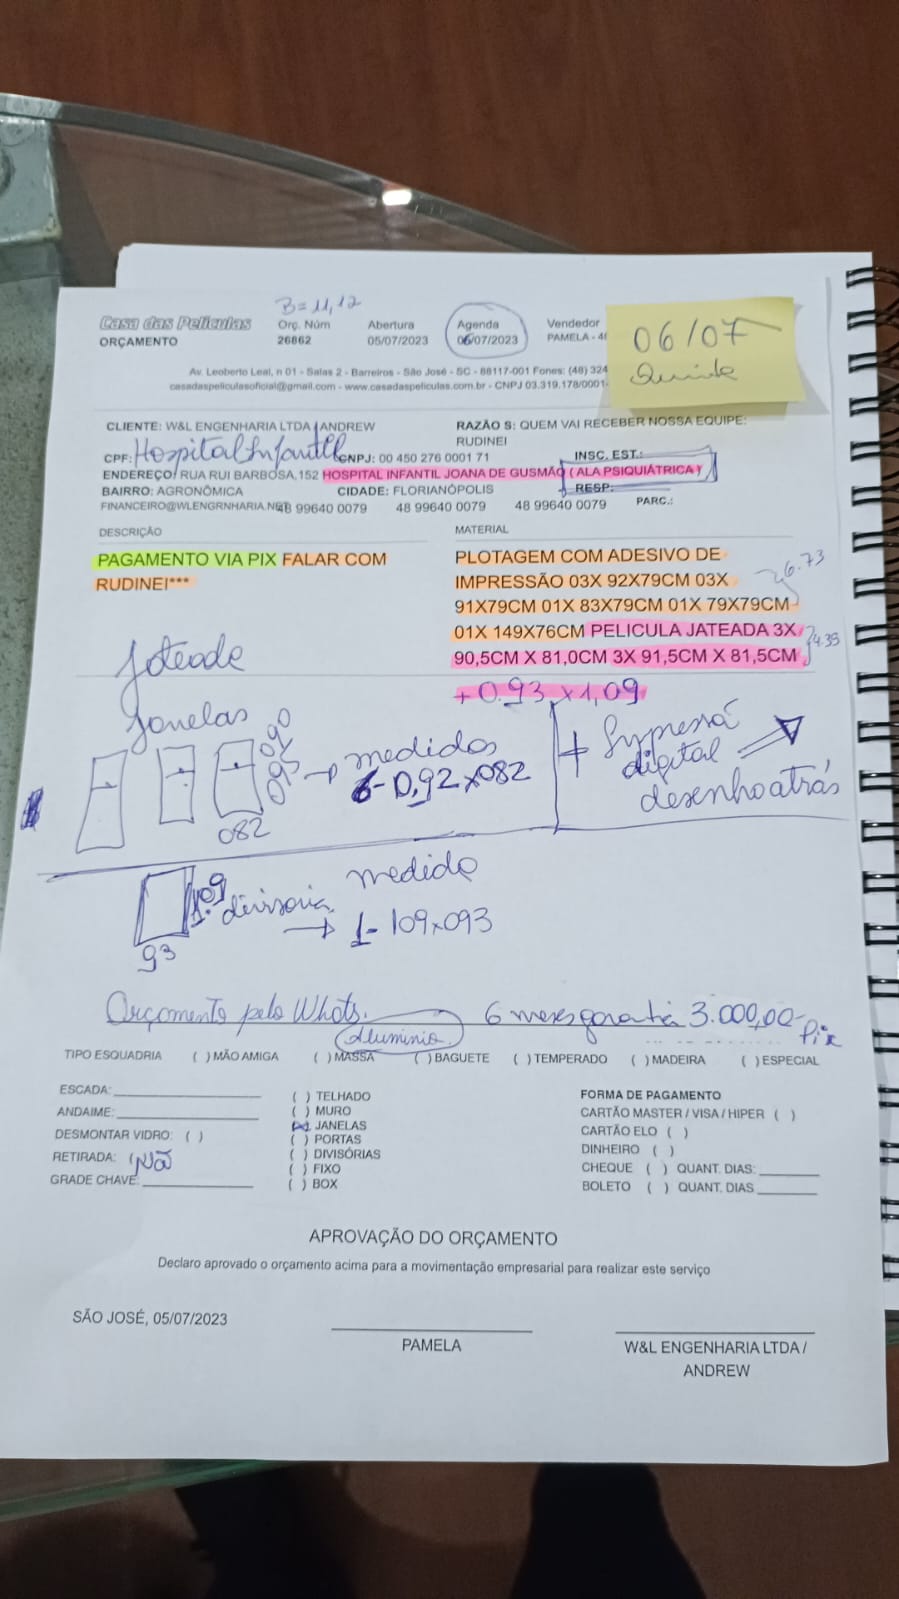 B=11,12
Casa das Películas
ORÇAMENTO
Orç. Núm
26862
Abertura
05/07/2023
Agenda
06/07/2023
Vendedor
PAMELA - 4
06/07
Quinta
Av. Leoberto Leal, n 01 - Salas 2 - Barreiros - São José - SC - 88117-001 Fones: (48) 324
casadaspeliculasoficial@gmail.com - www.casadaspeliculas.com.br - CNPJ 03.319.178/0001-
CLIENTE: W&L ENGENHARIA LTDA / ANDREW
RAZÃO S: QUEM VAI RECEBER NOSSA EQUIPE:
RUDINEI
CPF: Hospital Infantil CNPJ: 00 450 276 0001 71
INSC. EST.:
ENDEREÇO: RUA RUI BARBOSA,152 HOSPITAL INFANTIL JOANA DE GUSMÃO ( ALA PSIQUIÁTRICA )
BAIRRO: AGRONÔMICA CIDADE: FLORIANÓPOLIS RESP.:
FINANCEIRO@WLENGRNHARIA.NE 48 99640 0079 48 99640 0079 48 99640 0079 PARC.:
DESCRIÇÃO
MATERIAL
PAGAMENTO VIA PIX FALAR COM
RUDINEI***
PLOTAGEM COM ADESIVO DE
IMPRESSÃO 03X 92X79CM 03X
91X79CM 01X 83X79CM 01X 79X79CM
01X 149X76CM PELICULA JATEADA 3X
90,5CM X 81,0CM 3X 91,5CM X 81,5CM
+ 0.93 x 1,09
6.73
4.39
Jateade
Janelas
090
090
082
medidas
6-0,92x082
+
digital
desenho atrás
1.09
93
divisoria
medida
1- 109x093
Orçamento pelo Whats.
6 meses garantia 3.000,00
Pix
aluminio
TIPO ESQUADRIA ( ) MÃO AMIGA ( ) MASSA ( ) BAGUETE ( ) TEMPERADO ( ) MADEIRA ( ) ESPECIAL
ESCADA:
ANDAIME:
DESMONTAR VIDRO: ( )
RETIRADA: ( Não
GRADE CHAVE:
( ) TELHADO
( ) MURO
(x) JANELAS
( ) PORTAS
( ) DIVISÓRIAS
( ) FIXO
( ) BOX
FORMA DE PAGAMENTO
CARTÃO MASTER / VISA / HIPER ( )
CARTÃO ELO ( )
DINHEIRO ( )
CHEQUE ( ) QUANT. DIAS:
BOLETO ( ) QUANT. DIAS
APROVAÇÃO DO ORÇAMENTO
Declaro aprovado o orçamento acima para a movimentação empresarial para realizar este serviço
SÃO JOSÉ, 05/07/2023
PAMELA
W&L ENGENHARIA LTDA /
ANDREW